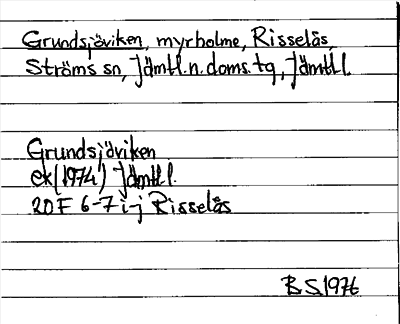 Grundsjöviken, myrholme, Risselås,
Ströms sn, Jämtl.n.doms.tg, Jämtl.l.
Grundsjöviken
ek(1974) Jämtl.l.
20F 6-7 i-j Risselås
B.S.1976